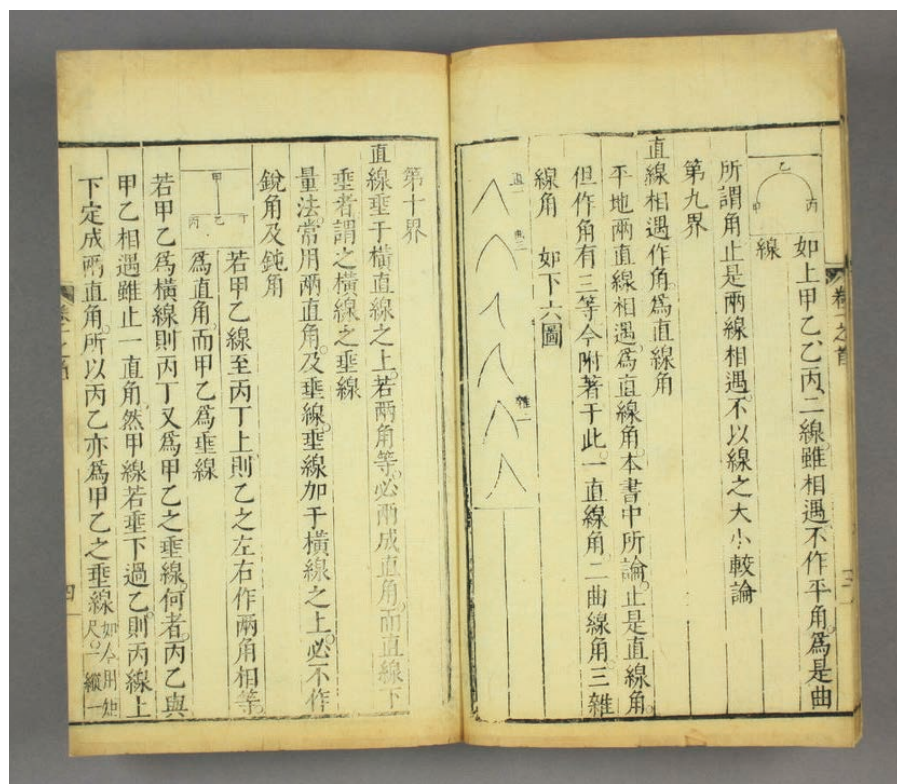 卷一之首
三
乙
丙
甲
如上甲乙乙丙二線雖相遇不作平角爲是曲
線
所謂角止是兩線相遇不以線之大小較論
第九界
直線相遇作角爲直線角
平地兩直線相遇爲直線角本書中所論止是直線角
但作角有三等今附著于此一直線角二曲線角三雜
線角
如下六圖
直一
曲三
雜二
第十界
直線垂于橫直線之上若兩角等必兩成直角而直線下
垂者謂之橫線之垂線
量法常用兩直角及垂線垂線加于橫線之上必不作
銳角及鈍角
甲
丁
乙
丙
若甲乙線至丙丁上則乙之左右作兩角相等
爲直角而甲乙爲垂線
若甲乙爲橫線則丙丁又爲甲乙之垂線何者丙乙與
甲乙相遇雖止一直角然甲線若垂下過乙則丙線上
下定成兩直角所以丙乙亦爲甲乙之垂線如今用矩
尺一縱一
四